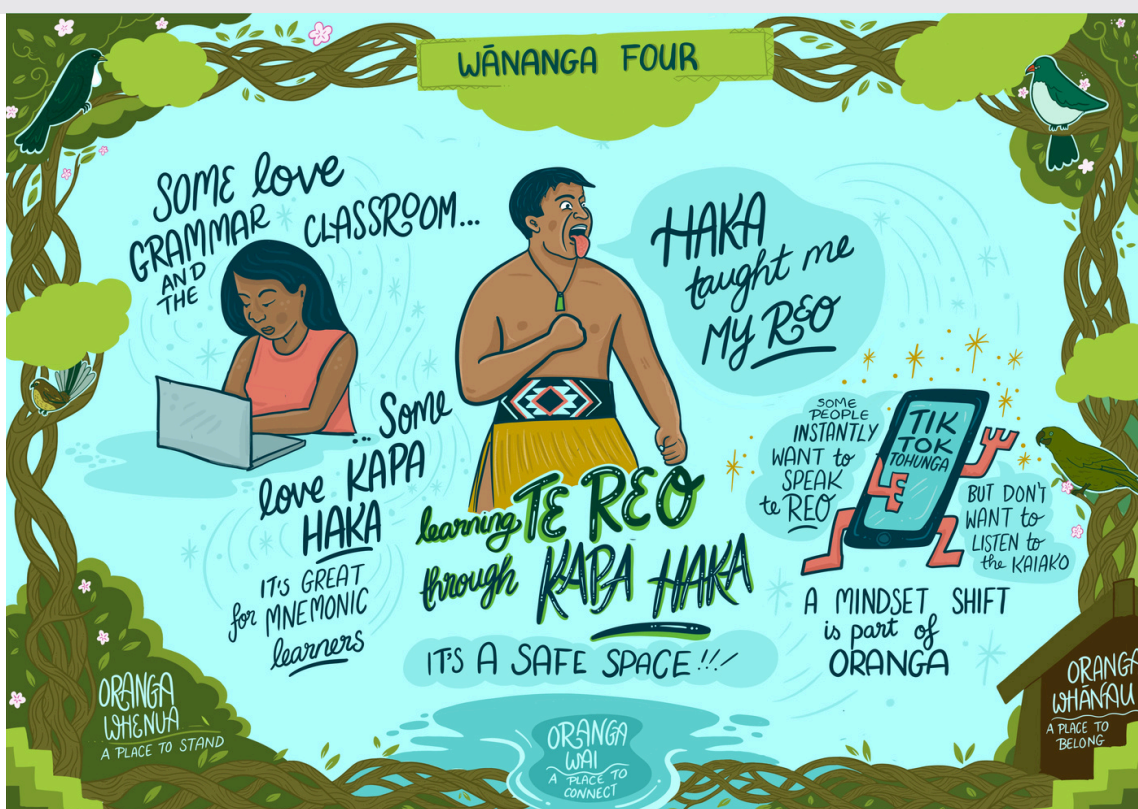 WĀNANGA FOUR
SOME love
GRAMMAR
AND
THE
CLASSROOM...
... Some
love KAPA
HAKA
IT'S GREAT
for MNEMONIC
learners
HAKA
taught me
MY REO
learning TE REO
through KAPA HAKA
IT'S A SAFE SPACE!!!
SOME
PEOPLE
INSTANTLY
WANT to
SPEAK
te REO
TIK
TOK
TOHUNGA
BUT DON'T
WANT to
LISTEN to
the KAIAKO
A MINDSET SHIFT
is part of
ORANGA
ORANGA
WHENUA
A PLACE TO STAND
ORANGA
WAI
A PLACE TO
CONNECT
ORANGA
WHĀNAU
A PLACE TO
BELONG